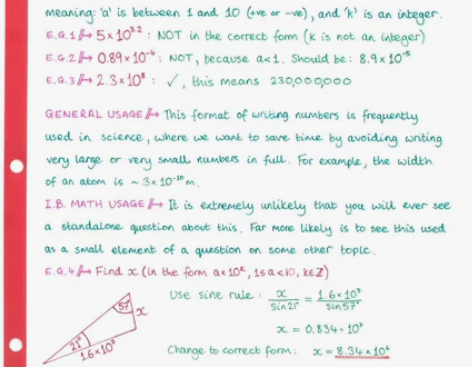 meaning: 'a' is between 1 and 10 (+ve or -ve), and 'k' is an integer.
E.G.1 → 5×10³·² : NOT in the correct form (k is not an integer)
E.G.2 → 0.89×10⁻⁴ : NOT, because a<1. Should be: 8.9×10⁻⁵
E.G.3 → 2.3×10⁸ : ✓, this means 230,000,000
GENERAL USAGE → This format of writing numbers is frequently
used in science, where we want to save time by avoiding writing
very large or very small numbers in full. For example, the width
of an atom is ~ 3×10⁻¹⁰m.
I.B. MATH USAGE → It is extremely unlikely that you will ever see
a standalone question about this. Far more likely is to see this used
as a small element of a question on some other topic.
E.G.4 → Find x (in the form a×10ᵏ, 1≤a<10, k∈ℤ)
Use sine rule : x/Sin21° = 1.6×10⁷/Sin57°
x = 0.834×10⁷
Change to correct form: x = 8.34×10⁶
57°
x
21°
1.6×10⁷